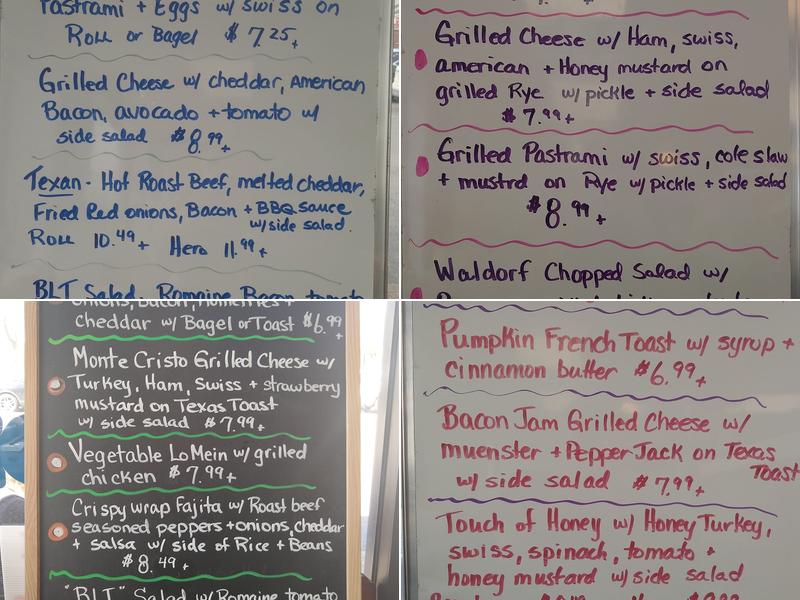 Pastrami + Eggs w/ swiss on
Roll or Bagel $7.25+
Grilled Cheese w/ cheddar, American
Bacon, avocado + tomato w/
side salad $8.99+
Texan - Hot Roast Beef, melted cheddar,
Fried Red onions, Bacon + BBQ sauce
w/side salad.
Roll 10.49+ Hero 11.99+
BLT Salad, Romaine Bacon tomato
Grilled Cheese w/ Ham, swiss,
american + Honey mustard on
grilled Rye w/pickle + side salad
$7.99+
Grilled Pastrami w/ swiss, cole slaw
+ mustrd on Rye w/pickle + side salad
$8.99+
Waldorf Chopped Salad w/
cheddar w/ Bagel or Toast $6.99+
Monte Cristo Grilled Cheese w/
Turkey, Ham, Swiss + strawberry
mustard on Texas Toast
w/ side salad $7.99+
Vegetable Lo Mein w/ grilled
chicken $7.99+
Crispy wrap Fajita w/ Roast beef
seasoned peppers + onions, cheddar
+ salsa w/ side of Rice + Beans
$8.49+
"BLT" Salad w/Romaine tomato
Pumpkin French Toast w/ syrup +
cinnamon butter $6.99+
Bacon Jam Grilled Cheese w/
muenster + Pepper Jack on Texas
Toast
w/ side salad $7.99+
Touch of Honey w/ Honey Turkey,
swiss, spinach, tomato +
honey mustard w/ side salad